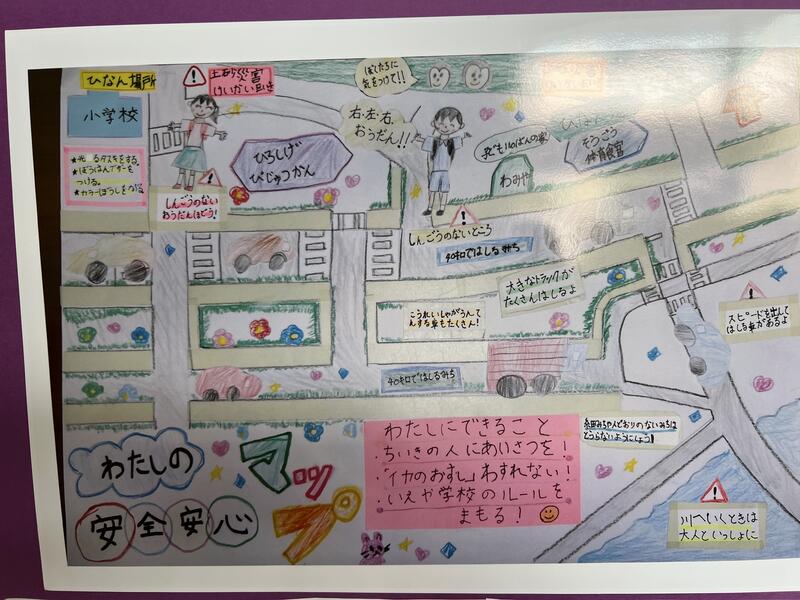 ひなん場所
小学校
土砂災害
けいかい区いき
ぼくたちに
気をつけて!!
右・左・右
おうだん!!
★光るタスキをする。
★ぼうはんブザーを
つける。
★カラーぼうしをかぶる
しんごうのない
おうだんほどう!
ひろしげ
びじゅつかん
子ども110ばんの家
わみや
ひなん
そうごう
体育館
しんごうのないところ
40キロではしるみち
大きなトラックが
たくさんはしるよ
こうれいしゃがうんて
んする車もたくさん!
スピードを出して
はしる車があるよ
40キロではしるみち
わたしにできること
・ちいきの人にあいさつを!
・「イカのおすし」わすれない!
・いえや学校のルールを
まもる!
余田みちや人どおりのないみちは
とおらないようにしよう!
川へいくときは
大人といっしょに
わたしの
安全安心
マップ